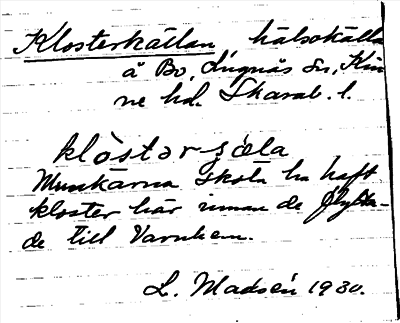 Klosterkällan, hälsokälla
å Bo, Lugnås sn, Kin
ne hd. Skarab. l.
klòstərsɶla
Munkarna skola ha haft
kloster här innan de flytta-
de till Varnhem.
L. Madsén 1930.